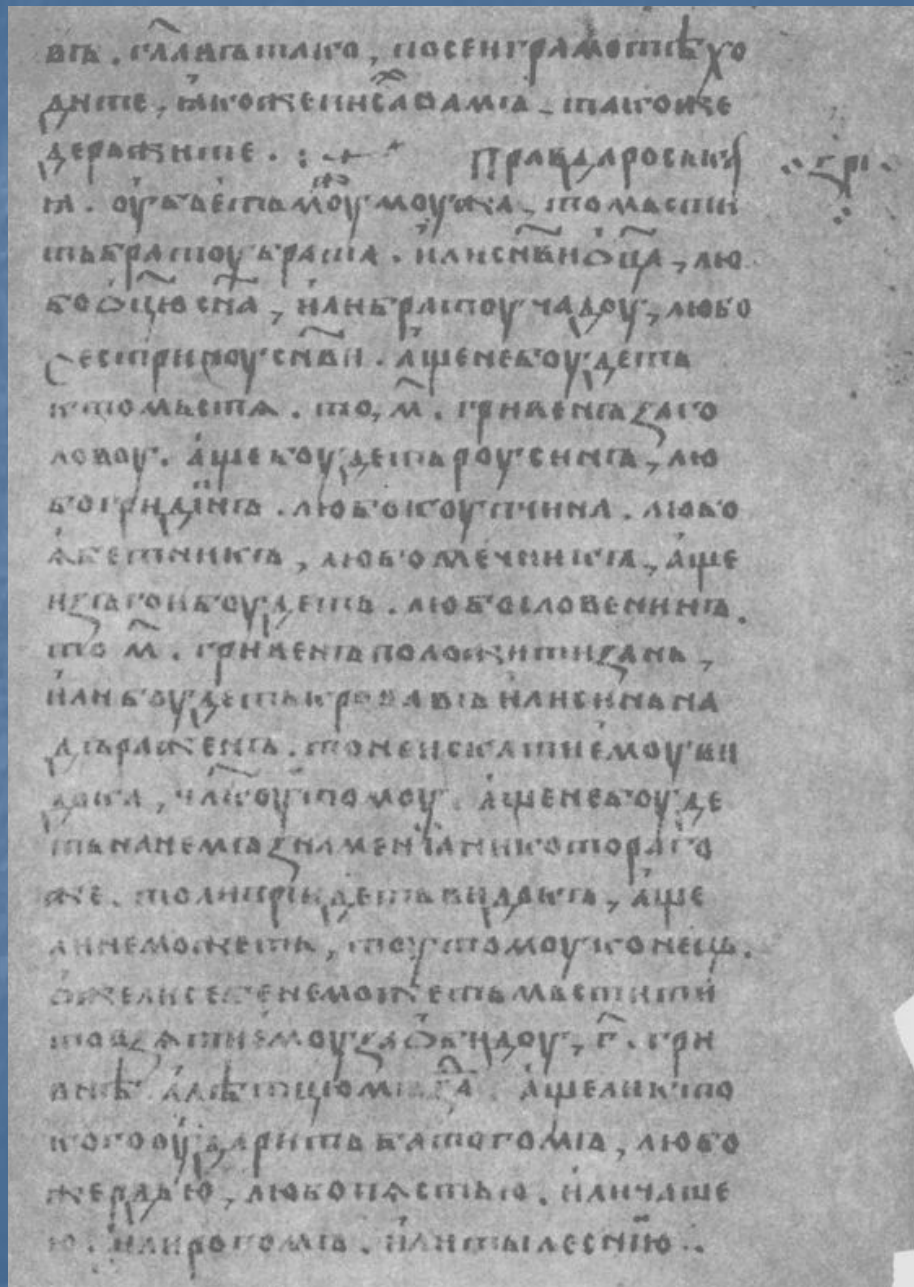 въ. гл҃ѧ имъ тако, по сеи грамотѣ хо
дите, ꙗкоже и исп҃са вамъ. такоже
держите. Правда роськи
ꙗ. оубьеть моу҃ моужа, то мьсти
ть братоу брата. или сн҃ви ѻц҃а, лю
бо ѻц҃ю сн҃а, или братоу чадоу, любо
сестриноу сн҃ви. аще не боудеть
кто мьстѧ. то, м҃. гривенъ за го
ловоу. аще боудеть роусинъ, лю
бо гридинъ. любо коупчина. любо
ѧбетникъ, любо мечникъ, аще
изъгои боудеть. любо словенинъ.
то м҃. гривенъ положити за нь,
или боудеть кровавъ или синь на
дъраженъ. то не искати емоу ви
дока, чл҃коу томоу. аще не боуде
ть на немъ знаменїа никотораго
же. то ли прїидеть видокъ, аще
ли не можеть, тоу томоу конець.
ѻже ли себе не можеть мьстити
то взѧти емоу за ѻбидоу, г҃. гри
внѣ а лѣтцю мъзда аще ли кто
кого оударить батогомъ, любо
жердью, любо пѧстью. или чаше
ю. или рогомъ. или тылеснїю.